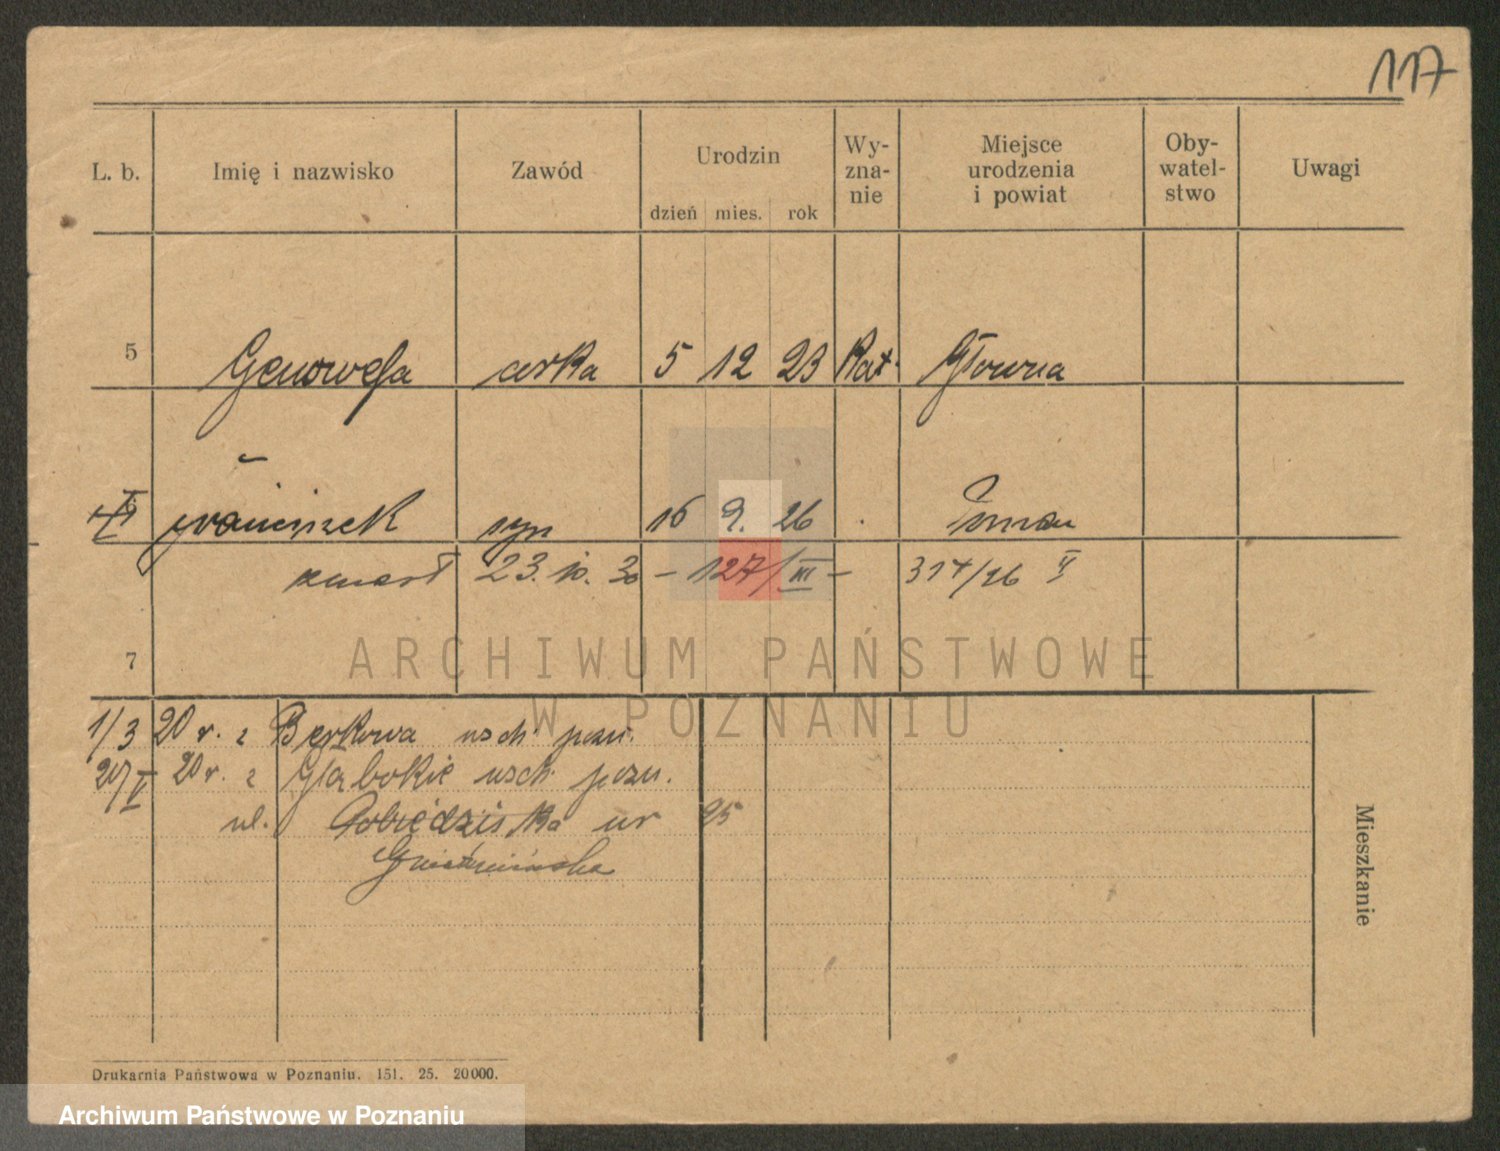 117
L. b. Imię i nazwisko Zawód Urodzin dzień mies. rok Wy-zna-nie Miejsce urodzenia i powiat Oby-watel-stwo Uwagi
5 Genowefa córka 5 12 23 Kat. Główna
Franciszek syn 16 9. 26 Poznań
zmarł 23. 10. 30 – 127/III – 314/26 V
7
1/3 20 r. z Berkowa wsch. pozn.
20/V 20 r. z Głębokie wsch. pozn.
ul. Pobiedziska nr 25
Gnieźnieńska
Mieszkanie
Drukarnia Państwowa w Poznaniu. 151. 25. 20000.
ARCHIWUM PAŃSTWOWE
W POZNANIU
Archiwum Państwowe w Poznaniu